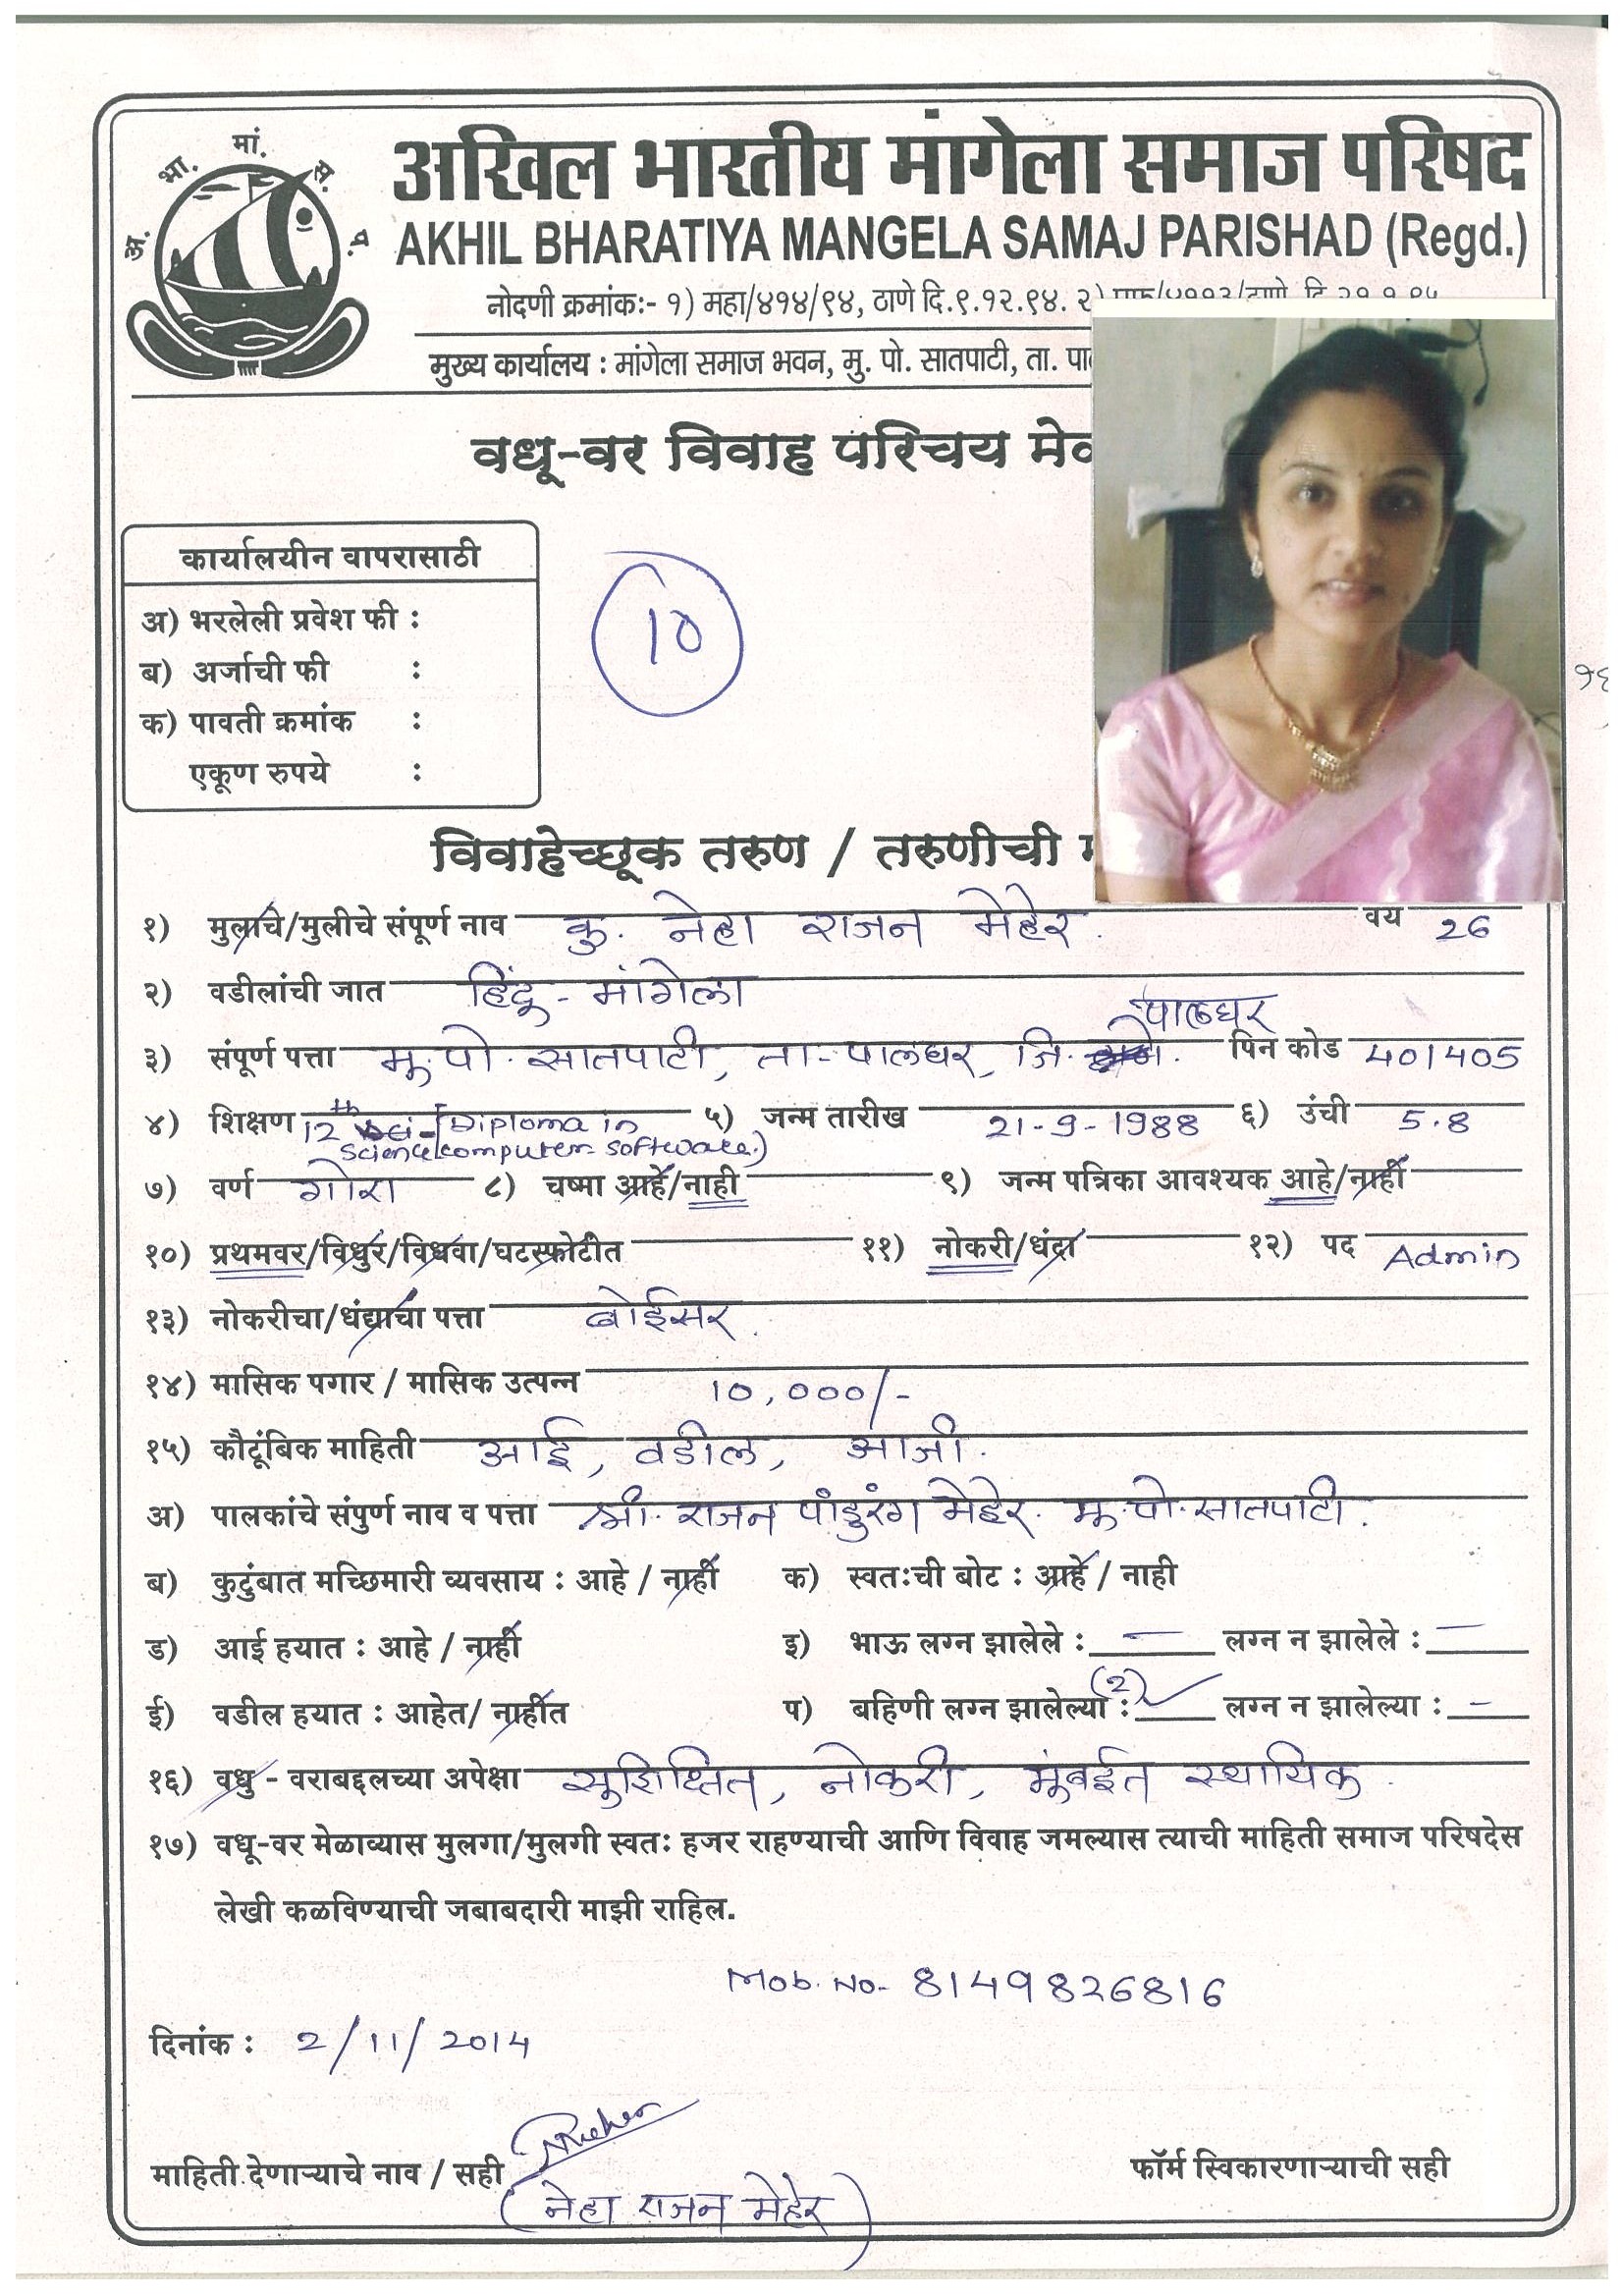 अ. भा. मां. स. प.
अखिल भारतीय मांगेला समाज परिषद
AKHIL BHARATIYA MANGELA SAMAJ PARISHAD (Regd.)
नोदणी क्रमांकः- १) महा/४१४/९४, ठाणे दि.९.१२.९४. २)
मुख्य कार्यालय : मांगेला समाज भवन, मु. पो. सातपाटी, ता.
वधू-वर विवाह परिचय
कार्यालयीन वापरासाठी
अ) भरलेली प्रवेश फी :
ब) अर्जाची फी :
क) पावती क्रमांक :
एकूण रुपये :
10
विवाहेच्छूक तरुण / तरुणीची
१) मुलाचे/मुलीचे संपूर्ण नाव कु. नेहा राजन मेहेर. वय 26
२) वडीलांची जात हिंदू - मांगेला
३) संपूर्ण पत्ता मू. पो. सातपाटी, ता - पालघर, जि. पालघर पिन कोड 401405
४) शिक्षण 12th science (Diploma in computer software.) ५) जन्म तारीख 21-9-1988 ६) उंची 5.8
७) वर्ण गोरा ८) चष्मा आहे/नाही ९) जन्म पत्रिका आवश्यक आहे/नाही
१०) प्रथमवर/विधुर/विधवा/घटस्फोटीत ११) नोकरी/धंदा १२) पद Admin
१३) नोकरीचा/धंद्याचा पत्ता बोईसर.
१४) मासिक पगार / मासिक उत्पन्न 10,000/-
१५) कौटूंबिक माहिती आई, वडील, आजी.
अ) पालकांचे संपुर्ण नाव व पत्ता श्री. राजन पांडुरंग मेहेर. मू. पो. सातपाटी.
ब) कुटुंबात मच्छिमारी व्यवसाय : आहे / नाही क) स्वतःची बोट : आहे / नाही
ड) आई हयात : आहे / नाही इ) भाऊ लग्न झालेले : — लग्न न झालेले : —
ई) वडील हयात : आहेत/ नाहीत प) बहिणी लग्न झालेल्या : (2) ✓ लग्न न झालेल्या : -
१६) वधु - वराबद्दलच्या अपेक्षा सूशिक्षित, नोकरी, मूंबईत स्थायिक.
१७) वधू-वर मेळाव्यास मुलगा/मुलगी स्वतः हजर राहण्याची आणि विवाह जमल्यास त्याची माहिती समाज परिषदेस
लेखी कळविण्याची जबाबदारी माझी राहिल.
Mob. No. 8149826816
दिनांक : 2/11/2014
माहिती देणाऱ्याचे नाव / सही
फॉर्म स्विकारणाऱ्याची सही
(नेहा राजन मेहेर)